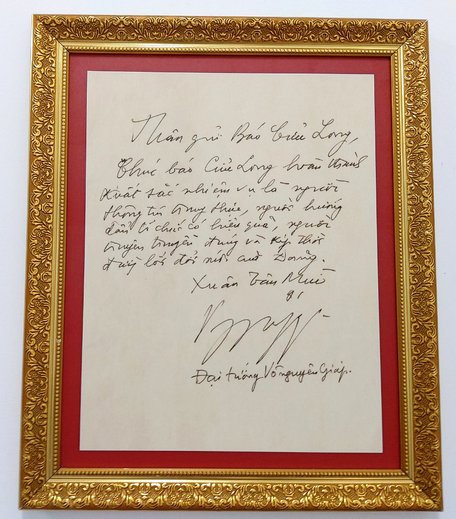 Thân gửi Báo Cửu Long,
Chúc báo Cửu Long hoàn thành
xuất sắc nhiệm vụ là người
thông tin trung thực, người hướng
dẫn tổ chức có hiệu quả, người
tuyên truyền đúng và kịp thời
đường lối đổi mới của Đảng.
Xuân Tân Mùi
91
Đại tướng Võ nguyên Giáp.